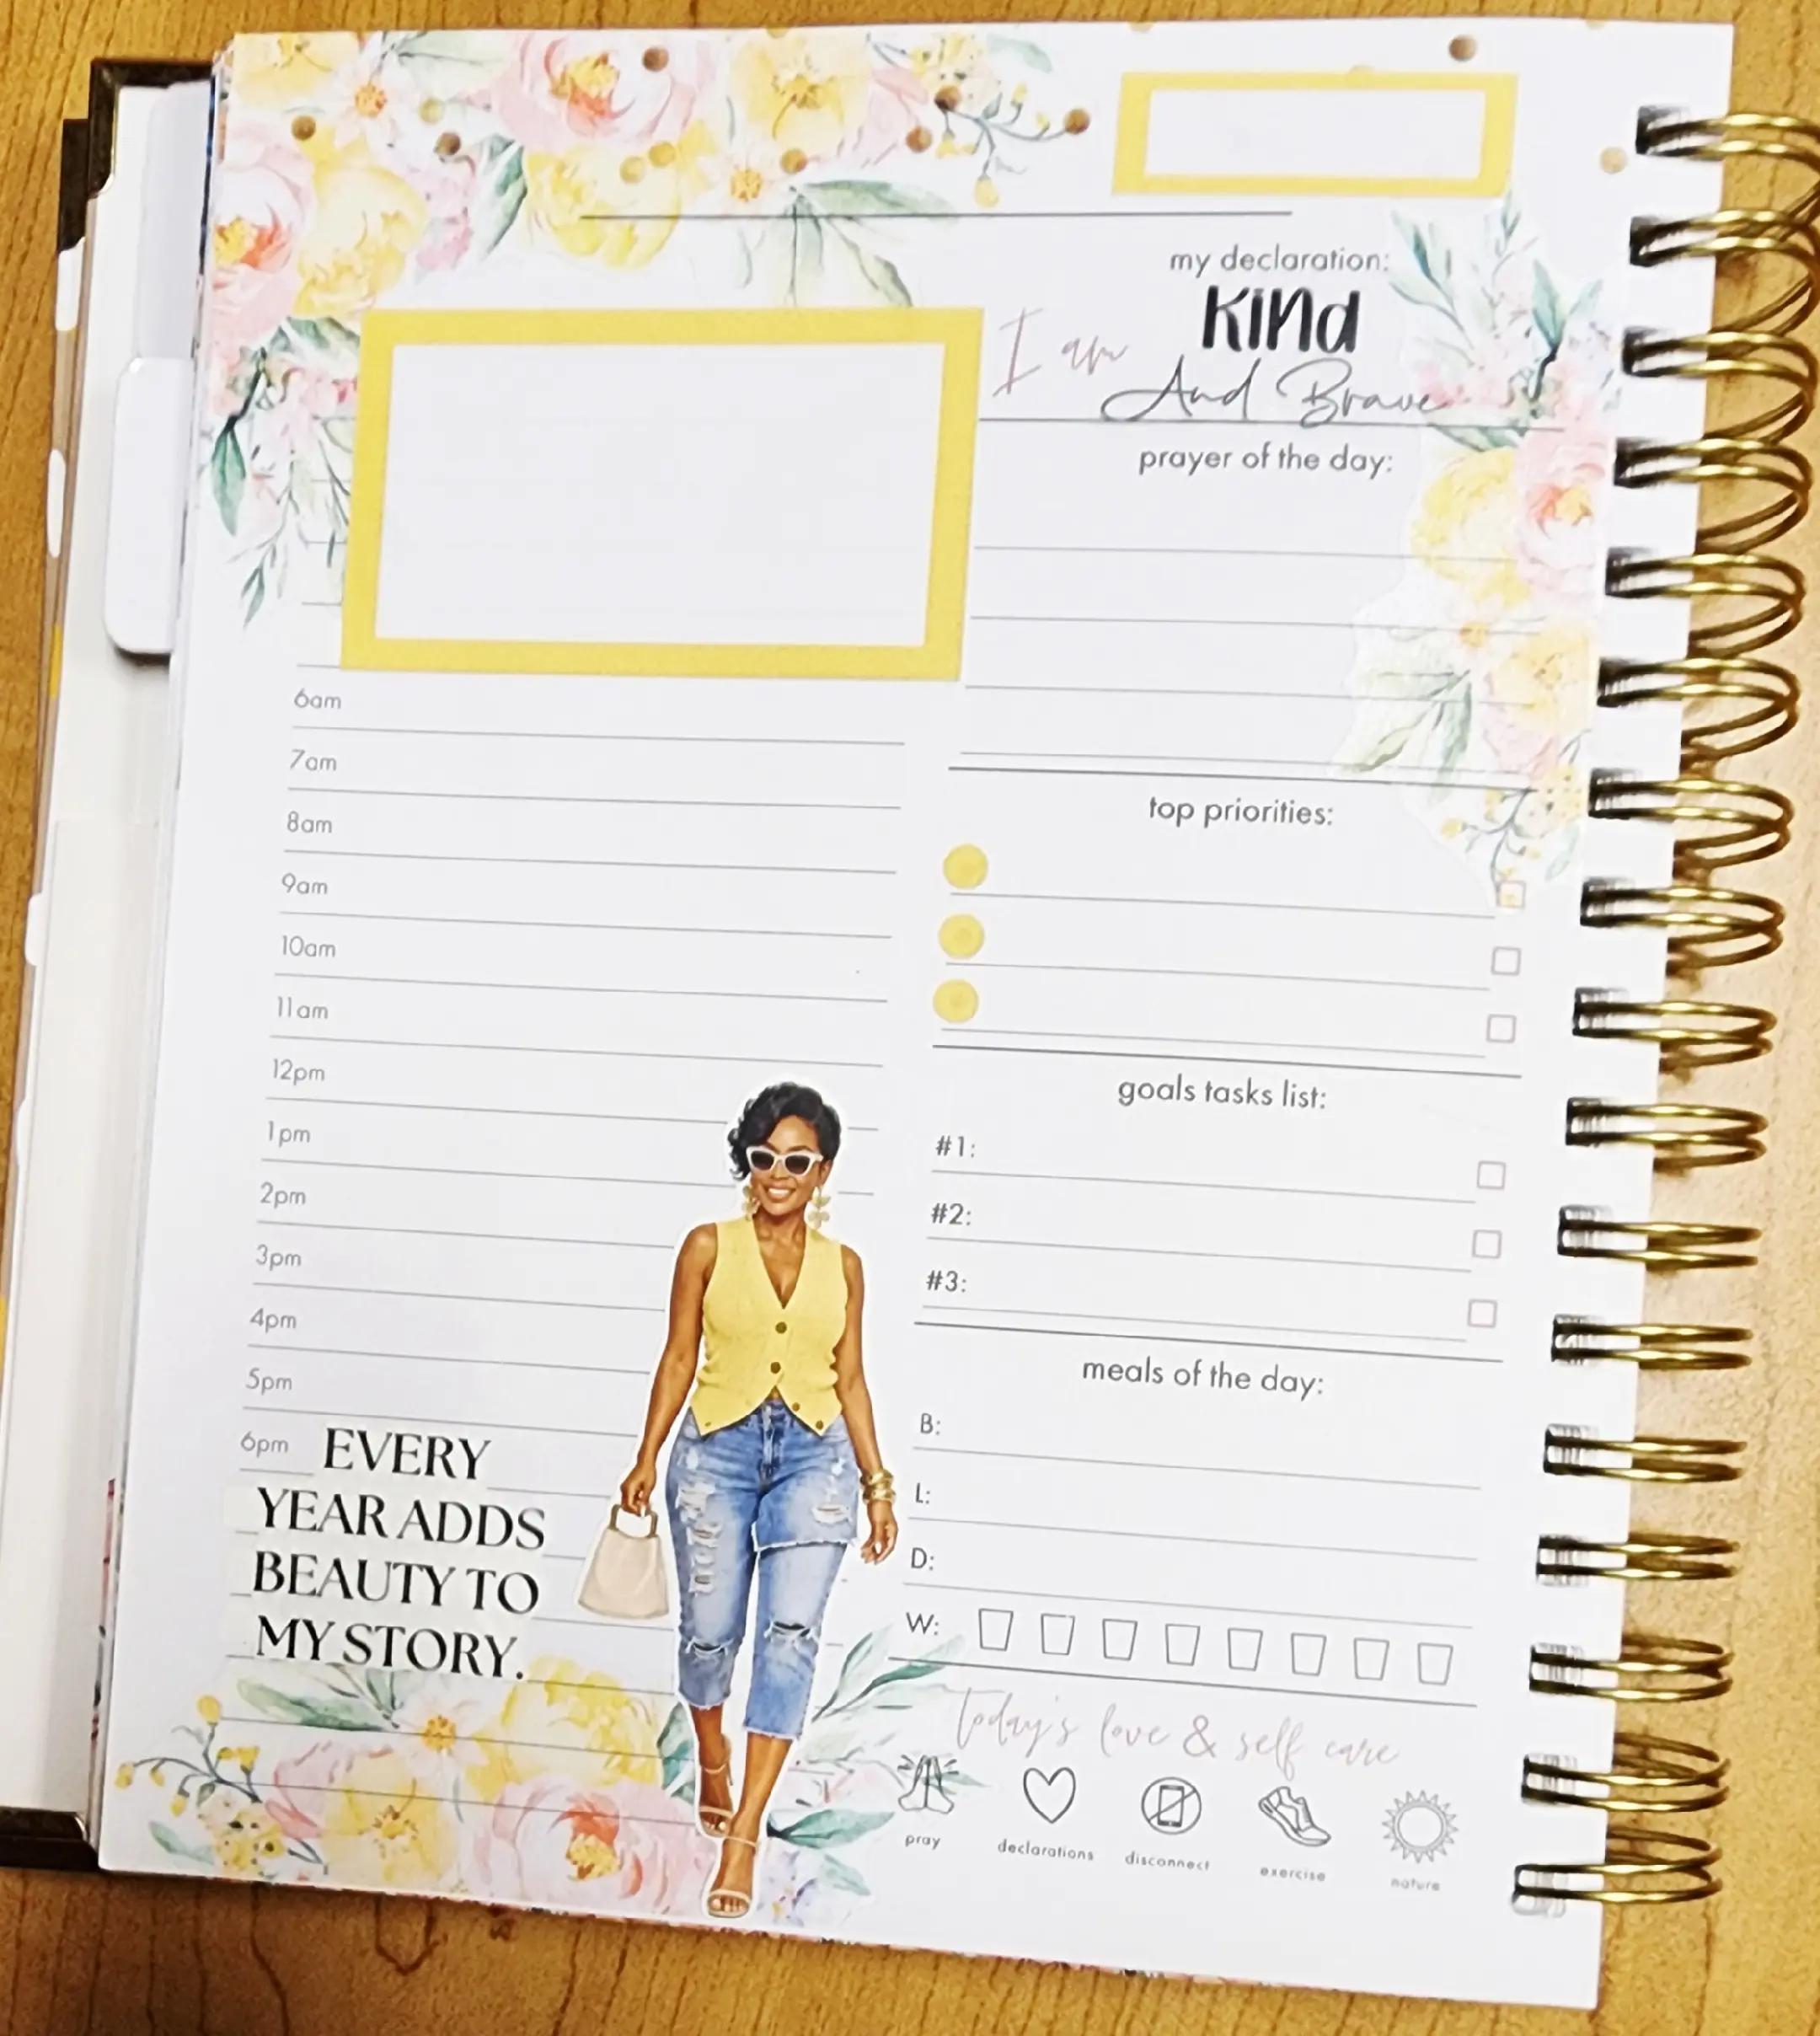 my declaration:
I am KINd
And Brave
prayer of the day:
6am
7am
8am
9am
10am
11am
12pm
1pm
2pm
3pm
4pm
5pm
6pm
EVERY
YEAR ADDS
BEAUTY TO
MY STORY.
top priorities:
goals tasks list:
#1:
#2:
#3:
meals of the day:
B:
L:
D:
W:
today's love & self care
pray declarations disconnect exercise nature